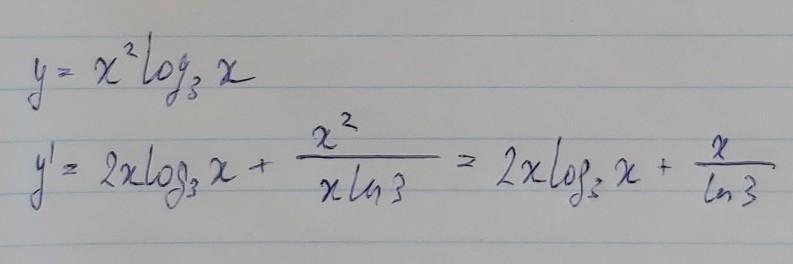 y = x² log₃ x
y' = 2x log₃ x + x²/(x ln 3) = 2x log₃ x + x/ln 3